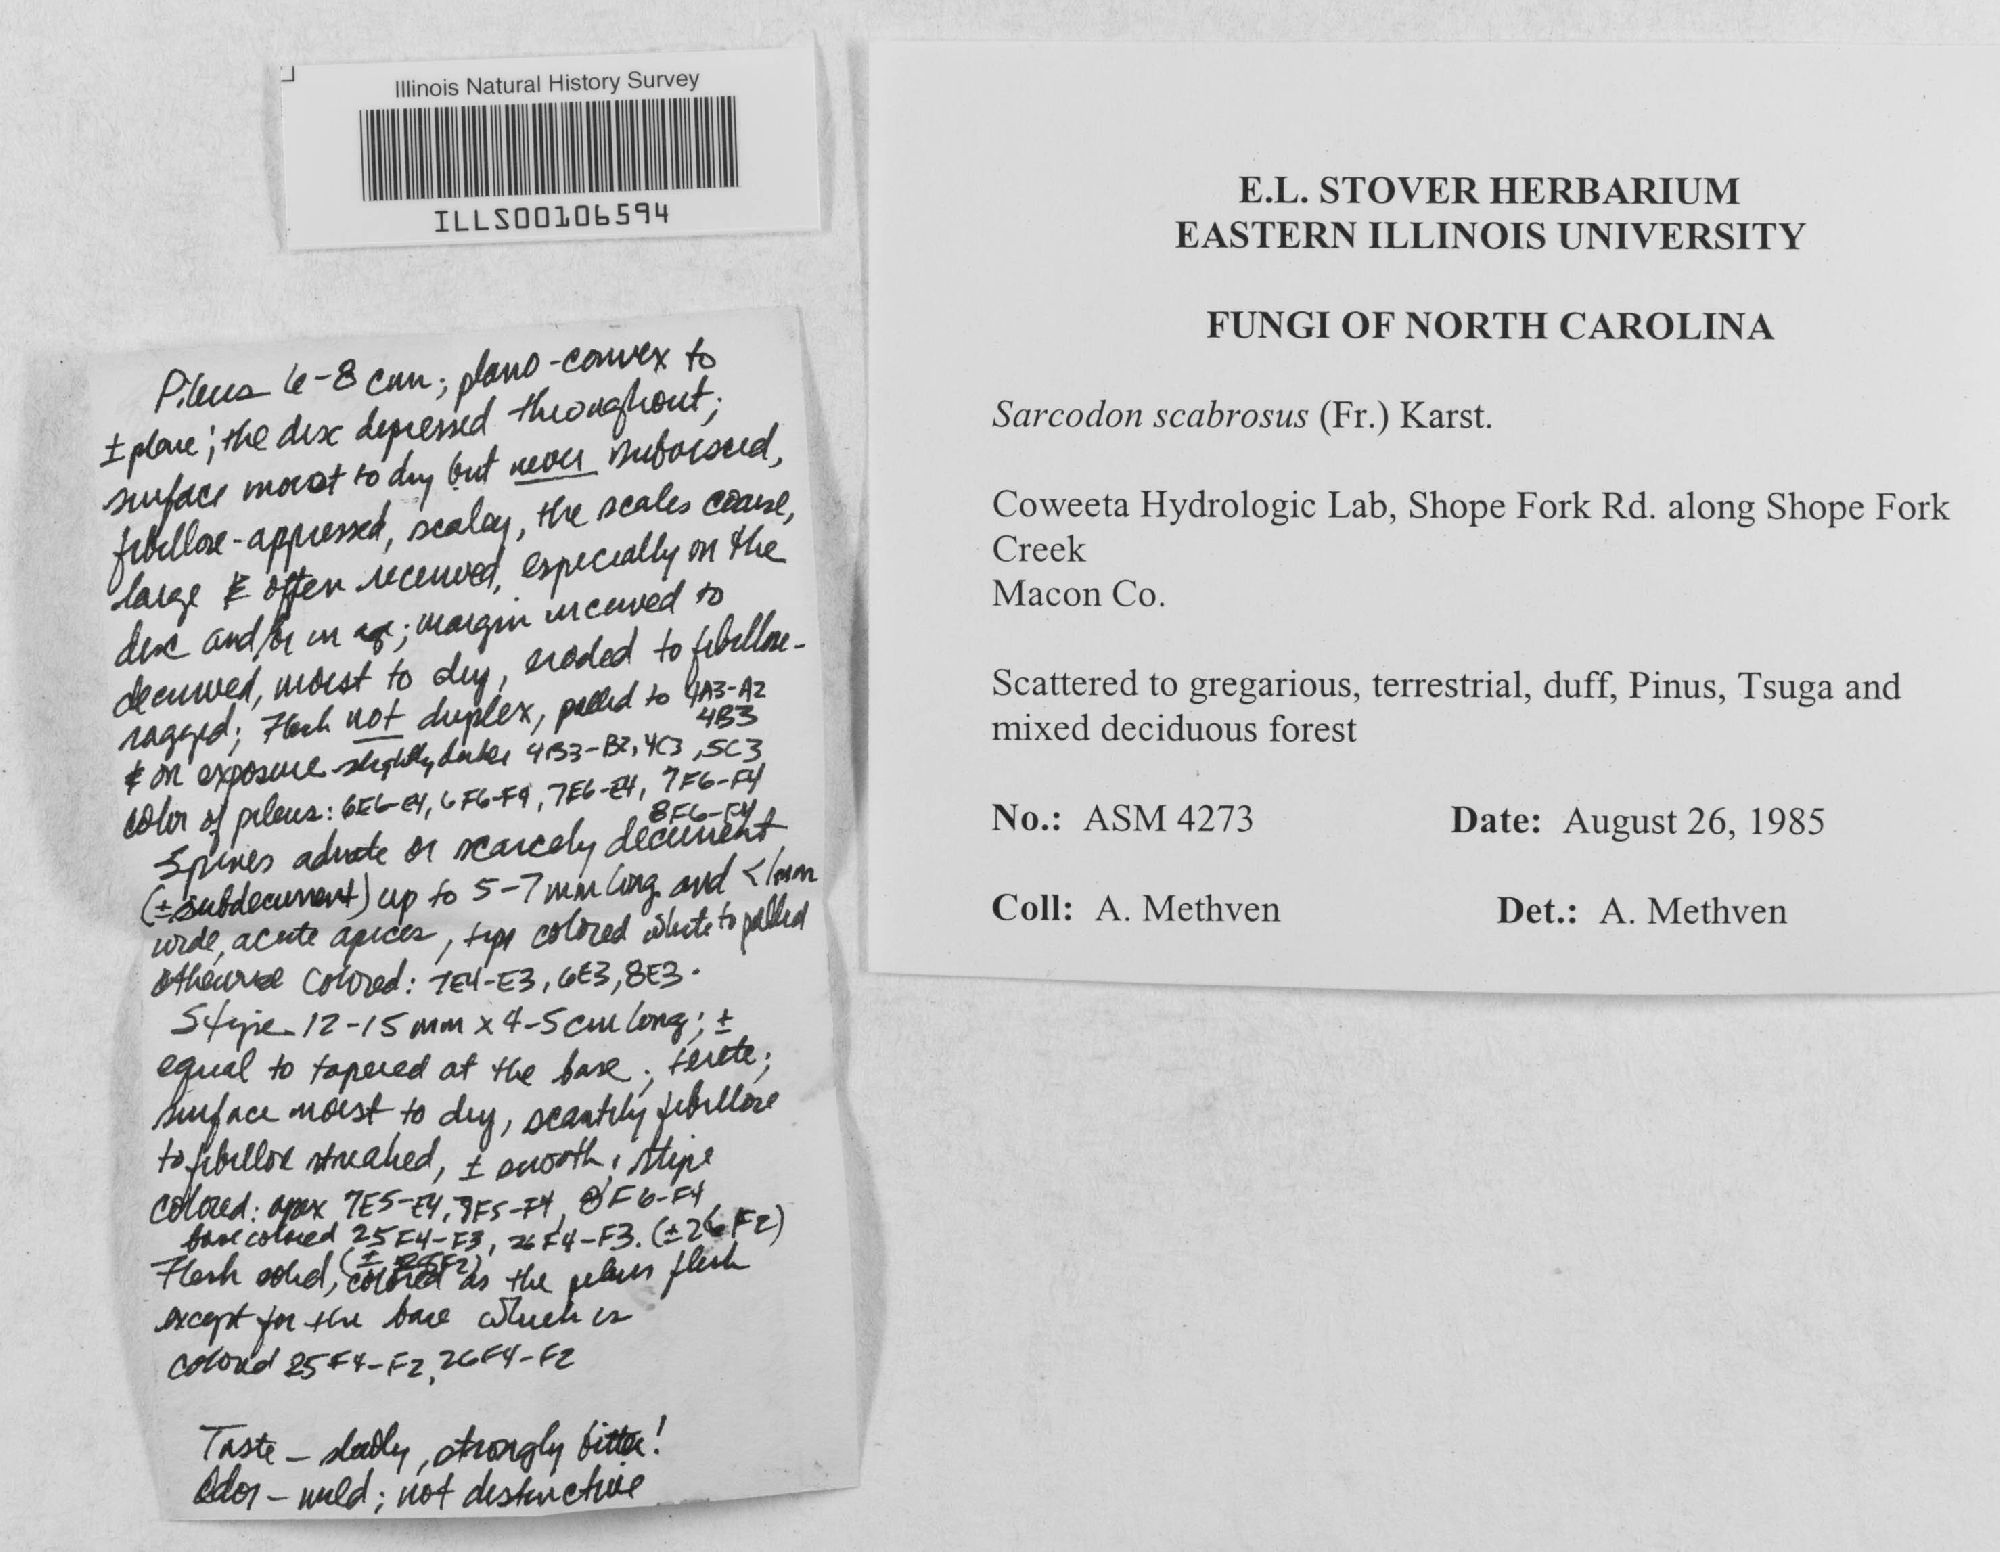 Illinois Natural History Survey
ILLS00106594
Pileus 6-8 cm; plano-convex to
± plane; the disc depressed throughout;
surface moist to dry but never subviscid,
fibrillose-appressed, scaley, the scales coarse,
large & often recurved, especially on the
disc and/or in age; margin incurved to
decurved, moist to dry, eroded to fibrillose-
ragged; Flesh not duplex, pallid to 4A3-A2
4B3
& on exposure slightly darker 4B3-B2, 4C3, 5C3
color of pileus: 6E6-E4, 6F6-F4, 7E6-E4, 7F6-F4
8F6-F4
Spines adnate or scarcely decurrent
(± subdecurrent) up to 5-7 mm long and <1mm
wide, acute apices, tips colored white to pallid
otherwise colored: 7E4-E3, 6E3, 8E3.
Stipe 12-15 mm x 4-5 cm long; ±
equal to tapered at the base; terete;
surface moist to dry, scantily fibrillose
to fibrillose streaked, ± smooth; stipe
colored: apex 7E5-E4, F5-F4, 8F6-F4
base colored 25F4-F3, 26F4-F3. (±26F2)
(± 25F2)
Flesh solid, colored as the pileus flesh
except for the base which is
colored 25F4-F2, 26F4-F2
Taste - strongly bitter!
Odor - mild; not distinctive
E.L. STOVER HERBARIUM
EASTERN ILLINOIS UNIVERSITY
FUNGI OF NORTH CAROLINA
Sarcodon scabrosus (Fr.) Karst.
Coweeta Hydrologic Lab, Shope Fork Rd. along Shope Fork
Creek
Macon Co.
Scattered to gregarious, terrestrial, duff, Pinus, Tsuga and
mixed deciduous forest
No.: ASM 4273 Date: August 26, 1985
Coll: A. Methven Det.: A. Methven